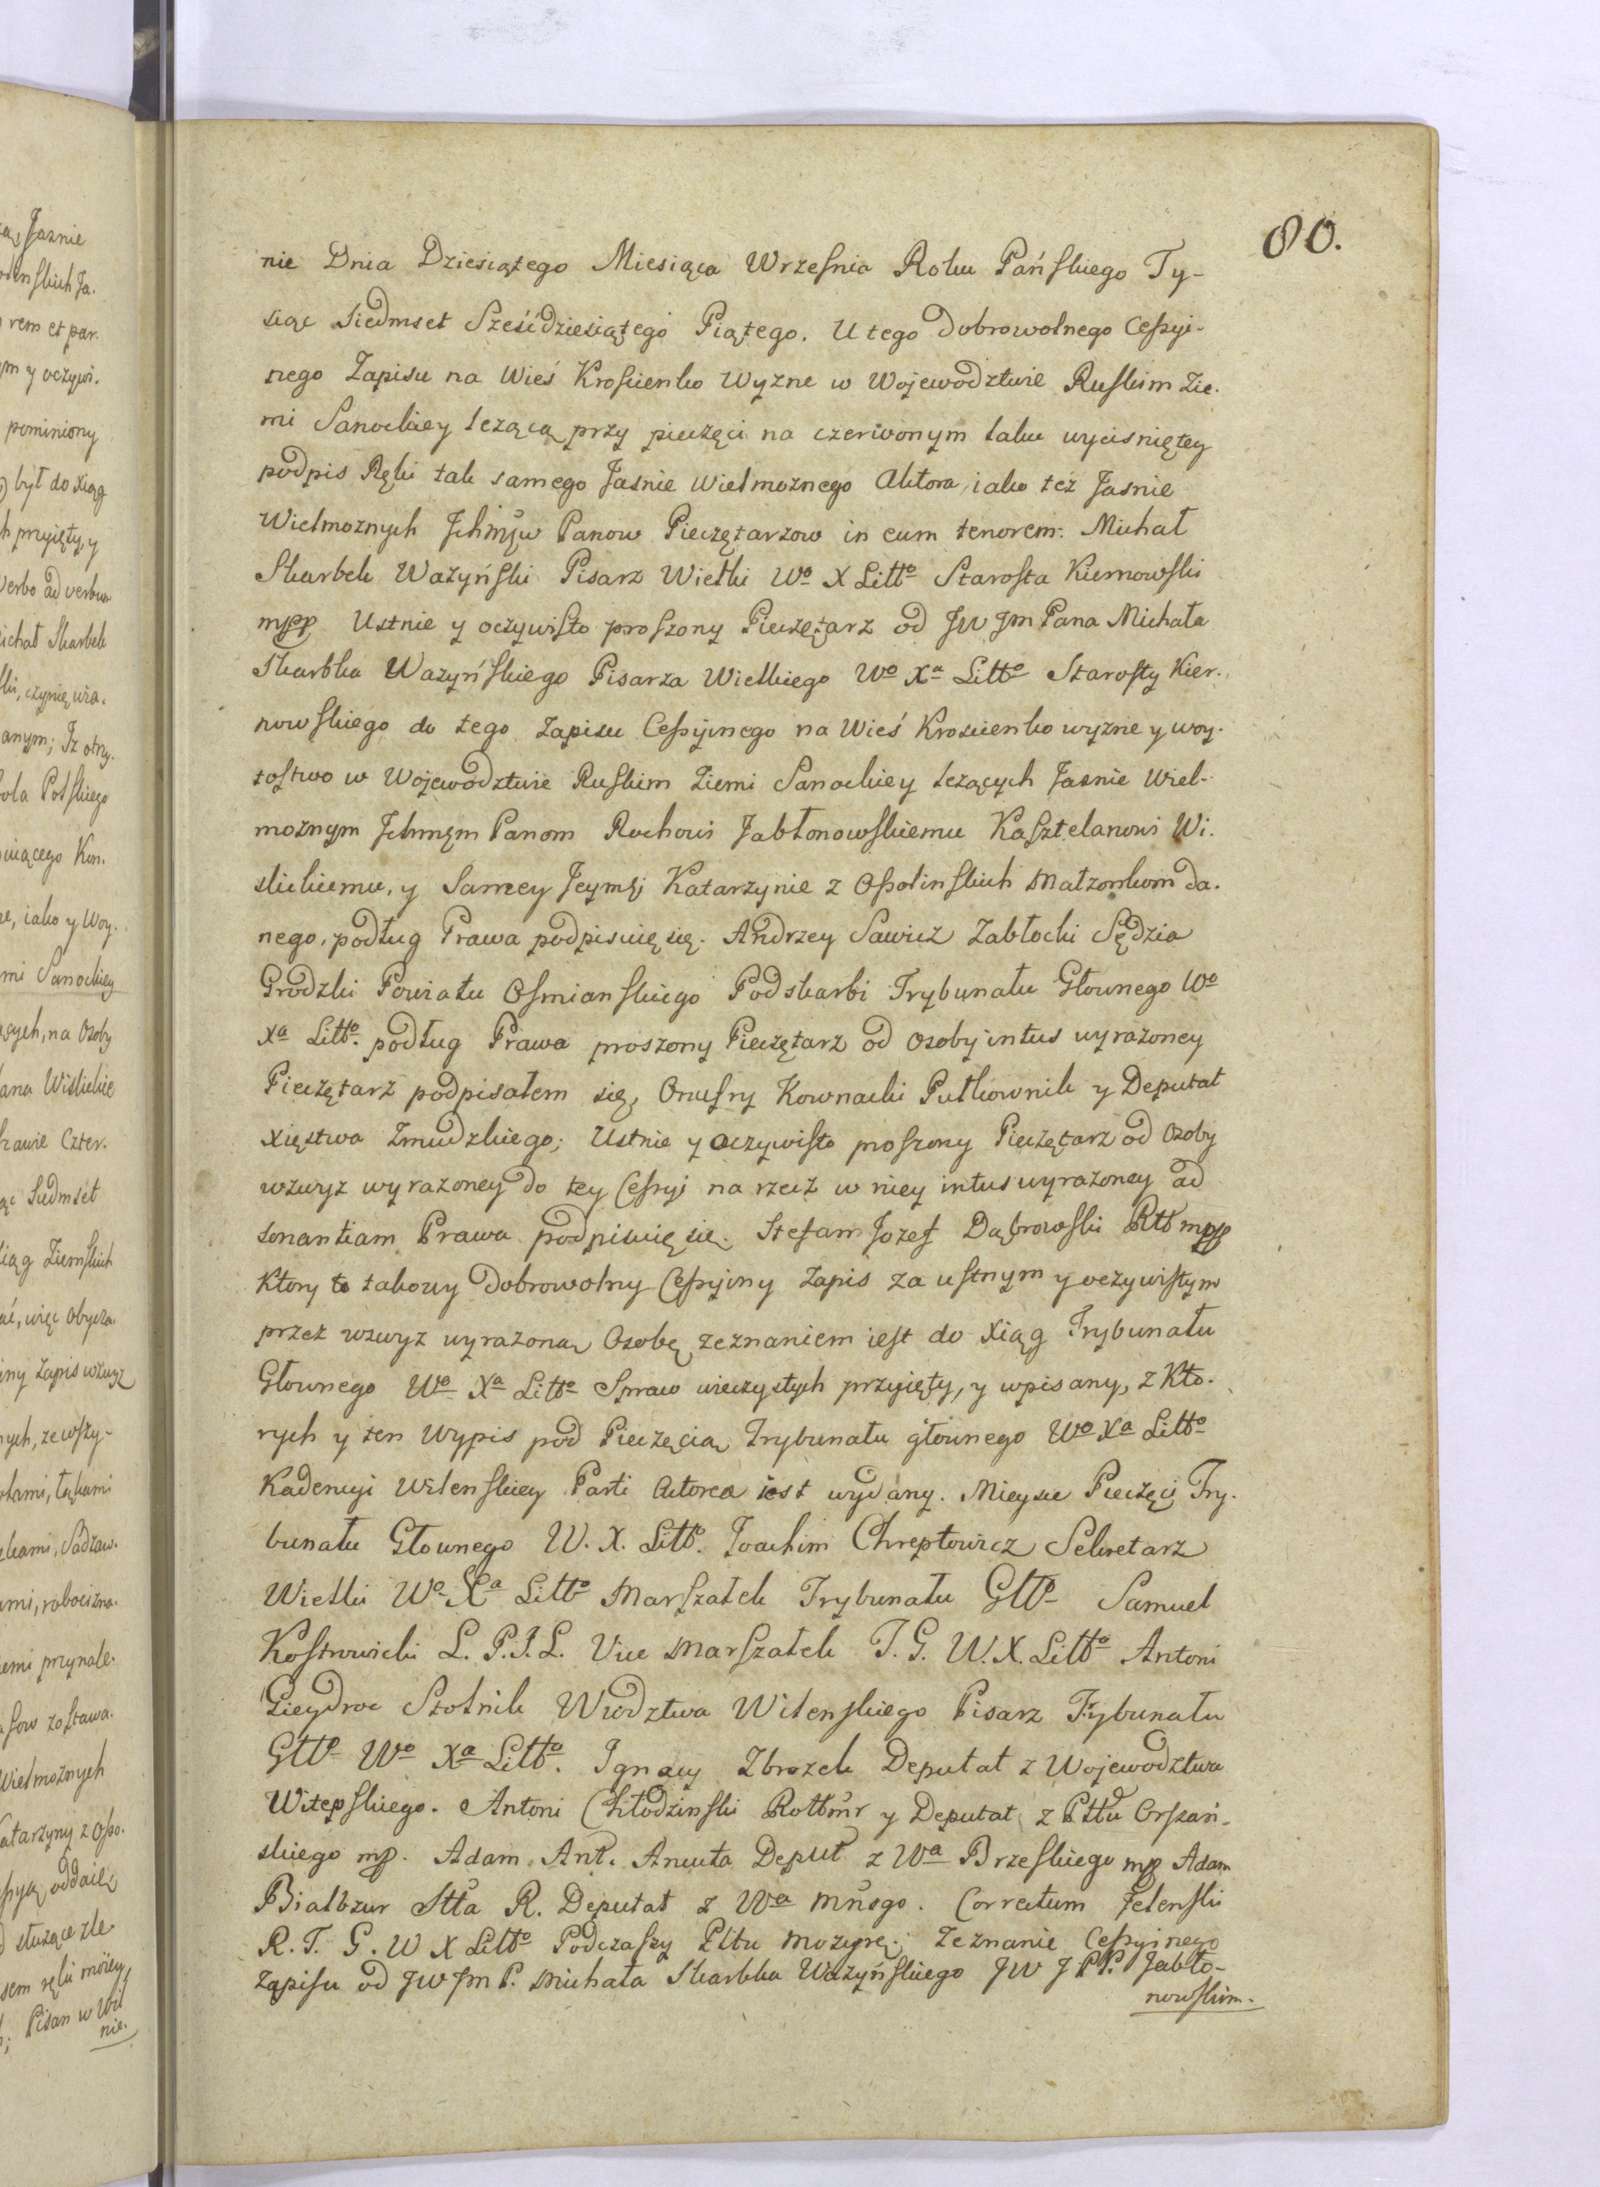 80.
nie Dnia Dziesiątego Miesiąca Wrzesnia Roku Pańskiego Ty-
siąc Siedmset Sześćdziesiątego Piątego. U tego dobrowolnego Cessyi-
nego Zapisu na Wieś Krościenko Wyzne w Wojewodztwie Ruskim Zie-
mi Sanockiey lezącą przy pieczęci na czerwonym laku wycisniętey
podpis Ręki tak samego Jasnie Wielmoznego Aktora, iako też Jasnie
Wielmoznych Jchmsw Panow Pieczętarzow in eum tenorem: Michał
Skarbek Ważyński Pisarz Wielki Wo X Litto Starosta Kiernowski
mpp Ustnie y oczywisto proszony Pieczętarz od JW Jm Pana Michała
Skarbka Ważyńskiego Pisarza Wielkiego Wo Xa Litto Starosty Kier-
nowskiego do tego Zapisu Cessyinego na Wieś Krościenko wyzne y woy-
tostwo w Wojewodztwie Ruskim Ziemi Sanockiey lezących Jasnie Wiel-
moznym Jchmsm Panom Rochowi Jabłonowskiemu Kasztelanowi Wi-
slickiemu, y Samey Jeymsj Katarzynie z Ossolinskich Małzonkom da-
nego, podług Prawa podpisuię się. Andrzey Sawicz Zabłocki Sędzia
Grodzki Powiatu Osmianskiego Podskarbi Trybunału Głownego Wo
Xa Litto. podług Prawa proszony Pieczętarz od osoby intus wyrazoney
Pieczętarz podpisałem się, Onufry Kownacki Pułkownik y Deputat
Xięstwa Zmudzkiego; Ustnie y oczywisto proszony Pieczętarz od Osoby
wzwyz wyrazoney do tey Cessyi na rzecz w niey intus wyrazoney ad
sonantiam Prawa podpisuię się. Stefan Jozef Dąbrowski Rtt mpp
Ktory to takowy Dobrowolny Cessyiny Zapis za ustnym y oczywistym
przez wzwyz wyrazoną Osobę zeznaniem iest do Xiąg Trybunału
Głownego Wo Xa Litto Spraw wieczystych przyięty, y wpisany, z Kto-
rych y ten Wypis pod Pieczęcią Trybunału głownego Wo Xa Litto
Kadencyi Wilenskiey Parti Actorea iest wydany. Mieysce Pieczęci Try-
bunału Głownego W. X. Litto. Joachim Chreptowicz Sekretarz
Wielki Wo Xa Litto Marszałek Trybunału Głło Samuel
Kostrowicki L. P. I. L. Vice Marszałek T. G. W. X. Litto Antoni
Gieydroc Stolnik Wiodztwa Wilenskiego Pisarz Trybunału
Głło Wo Xa Litto. Ignacy Zbrozek Deputat z Wojewodztwa
Witepskiego. Antoni Chłodzinski Rottmr y Deputat z Pttu Orszań-
skiego mp. Adam Ant. Ancuta Deput z Wa Brzeskiego mp Adam
Białłzur Stta R. Deputat z Wa Mńsgo. Correctum Jelenski
R. T. G. W X Litto Podczaszy Pttu Mozyrs. Zeznanie Cessyinego
Zapisu od JW Jm P. Michała Skarbka Ważyńskiego JW J PP. Jabło-
nowskim.